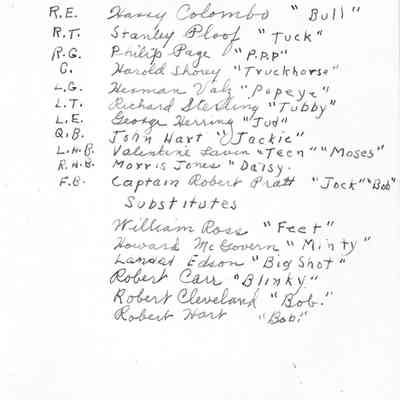 R.E. Harry Colombo "Bull"
R.T. Stanley Ploof "Tuck"
R.G. Philip Page "P.P.P"
C. Harold Shorey "Truckhorse"
L.G. Herman Valz "Popeye"
L.T. Richard Sterling "Tubby"
L.E. George Herring "Jud"
Q.B. John Hart "Jackie"
L.H.B. Valentine Lavin "Teen" "Moses"
R.H.B. Morris Jones "Daisy.
F.B. Captain Robert Pratt "Jock" "Bob"
Substitutes
William Ross "Feet"
Howard McGovern "Minty"
Landat Edson "Big Shot"
Robert Carr "Blinky"
Robert Cleveland "Bob."
Robert Hart "Bob."